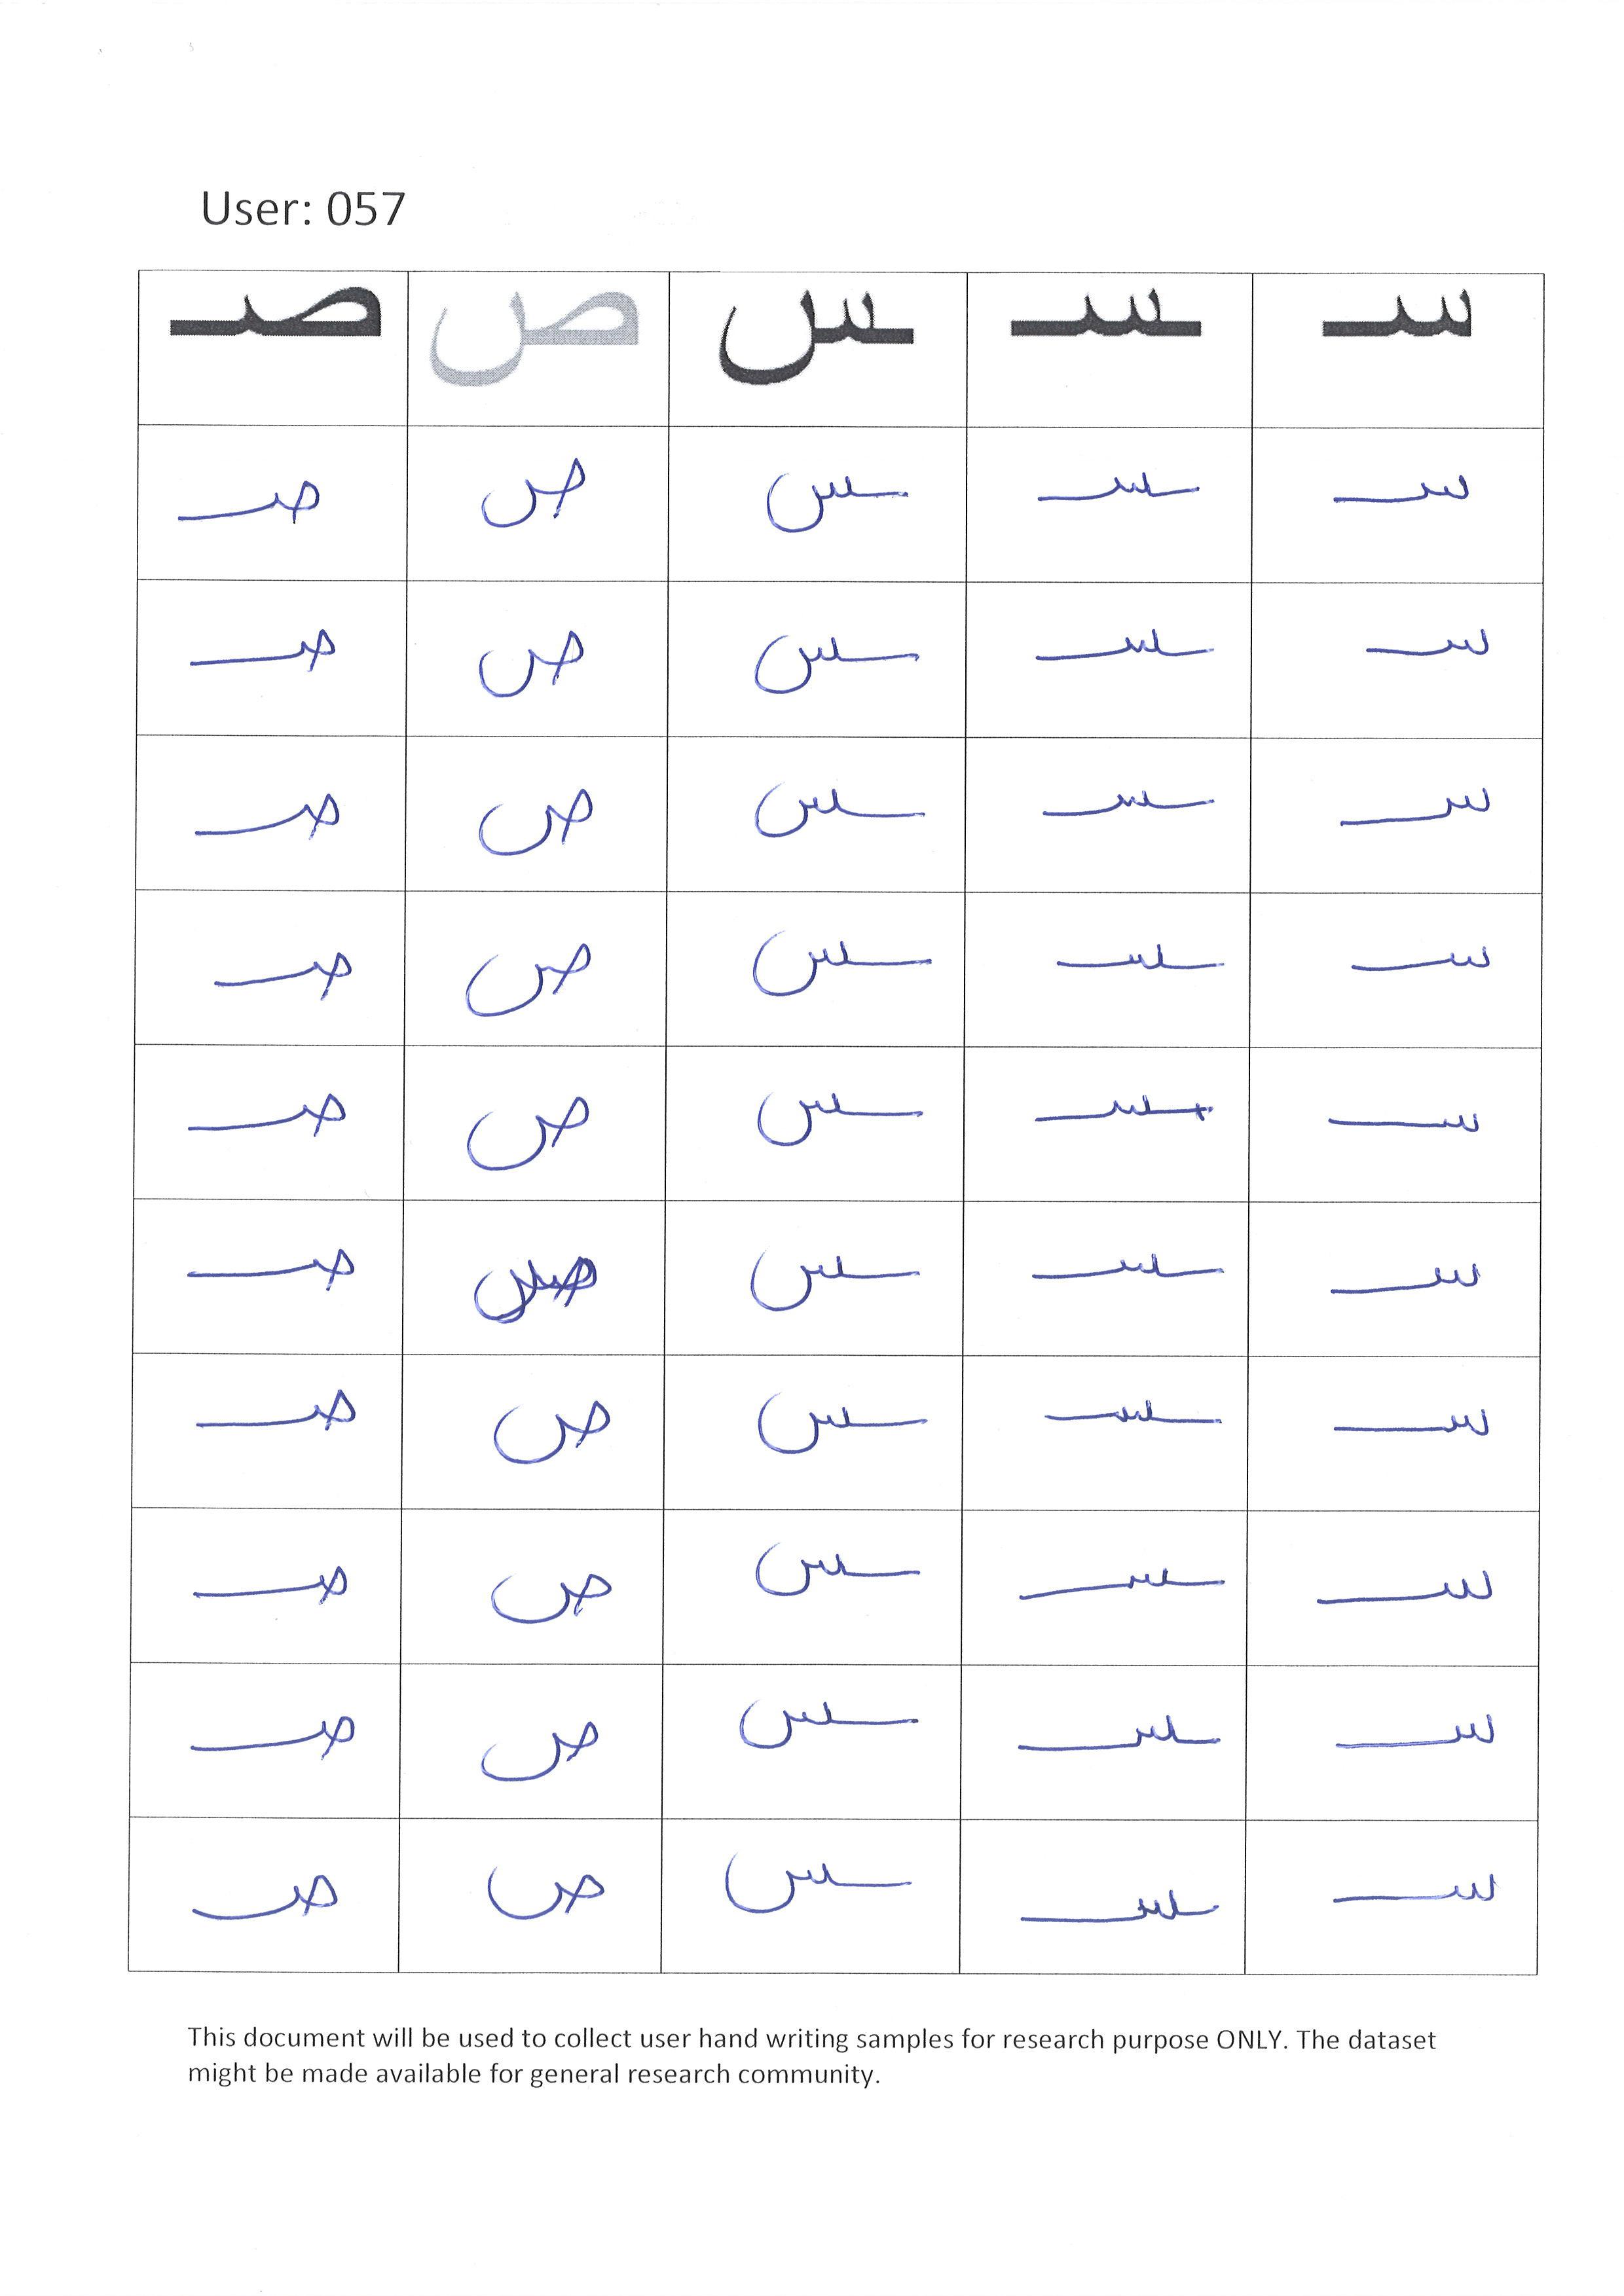 User: 057
سـ ـسـ ـس ص صـ
سـ ـسـ ـس ص صـ
سـ ـسـ ـس ص صـ
سـ ـسـ ـس ص صـ
سـ ـسـ ـس ص صـ
سـ ـسـ ـس ص صـ
سـ ـسـ ـس ص صـ
سـ ـسـ ـس ص صـ
سـ ـسـ ـس ص صـ
سـ ـسـ ـس ص صـ
سـ ـسـ ـس ص صـ
This document will be used to collect user hand writing samples for research purpose ONLY. The dataset
might be made available for general research community.